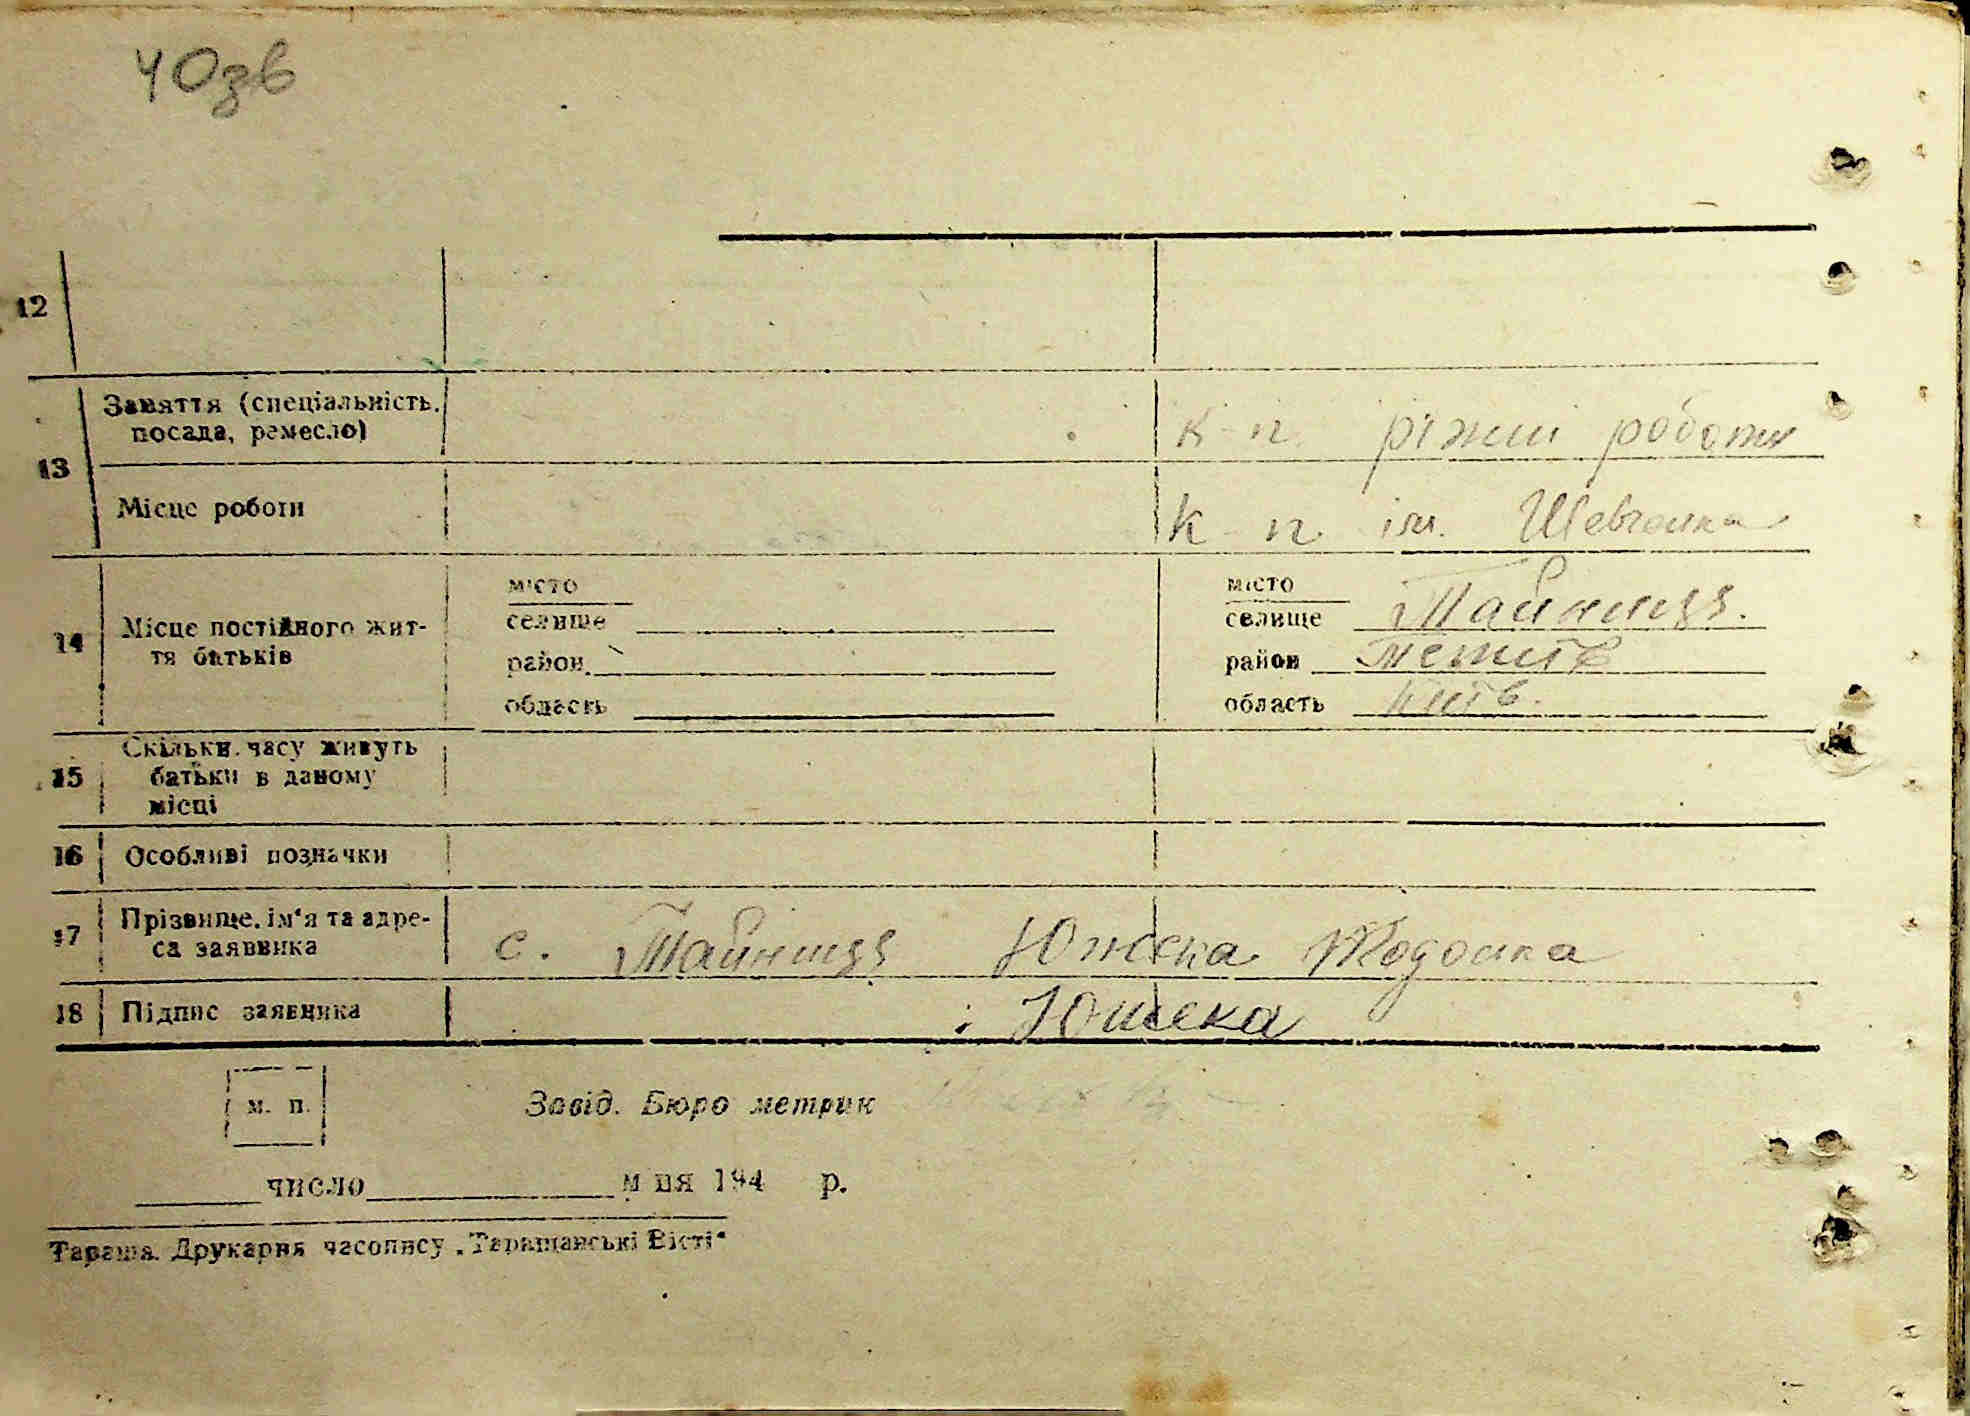 40зв
12
13
Заняття (спеціальність, посада, ремесло)
к-п ріжні роботи
Місце роботи
к-п ім. Шевченка
14
Місце постійного життя батьків
місто
селище
район
область
місто
селище Тайниця.
район Тетіїв
область Київ.
15
Скільки часу живуть батьки в даному місці
16
Особливі позначки
17
Прізвище, ім'я та адреса заяввника
с. Тайниця Южека Тодоська
18
Підпис заявника
Южека
м. п.
Завід. Бюро метрик
число м-ця 194 р.
Тараща. Друкарня часопису „Таращанські Вісті“